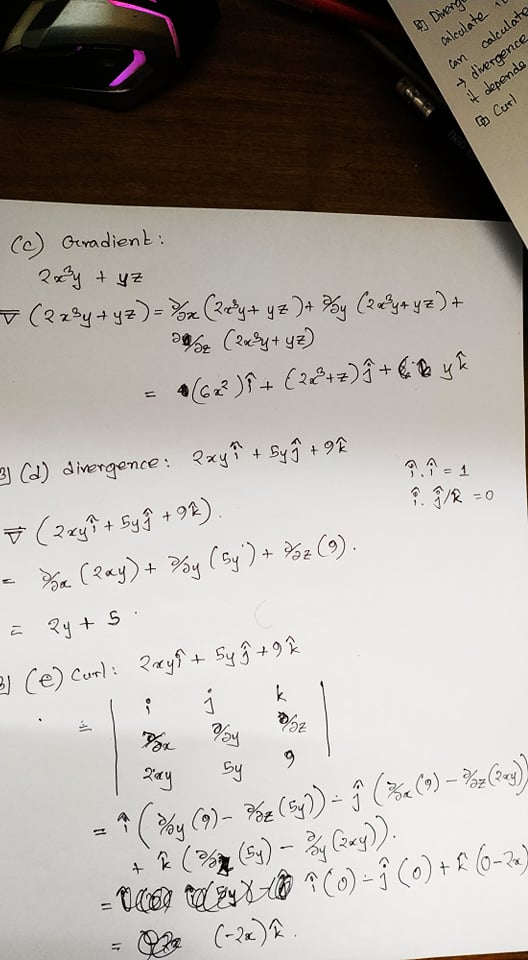 ⊞ Diverg
calculate i
can calculate
→ divergence
it depends
⊞ Curl
(c) Gradient:
2x³y + yz
∇ (2x³y + yz) = ∂/∂x (2x³y + yz) + ∂/∂y (2x³y + yz) +
∂/∂z (2x³y + yz)
= (6x²) î + (2x³+z) ĵ + y k̂
3) (d) divergence: 2xy î + 5y ĵ + 9 k̂
î . î = 1
î . ĵ/k̂ = 0
∇ (2xy î + 5y ĵ + 9 k̂).
= ∂/∂x (2xy) + ∂/∂y (5y) + ∂/∂z (9).
= 2y + 5 .
3) (e) Curl: 2xy î + 5y ĵ + 9 k̂
= | i j k |
| ∂/∂x ∂/∂y ∂/∂z |
| 2xy 5y 9 |
= î (∂/∂y (9) - ∂/∂z (5y)) - ĵ (∂/∂x (9) - ∂/∂z (2xy))
+ k̂ (∂/∂x (5y) - ∂/∂y (2xy)).
= î (0) - ĵ (0) + k̂ (0-2x)
= (-2x) k̂ .